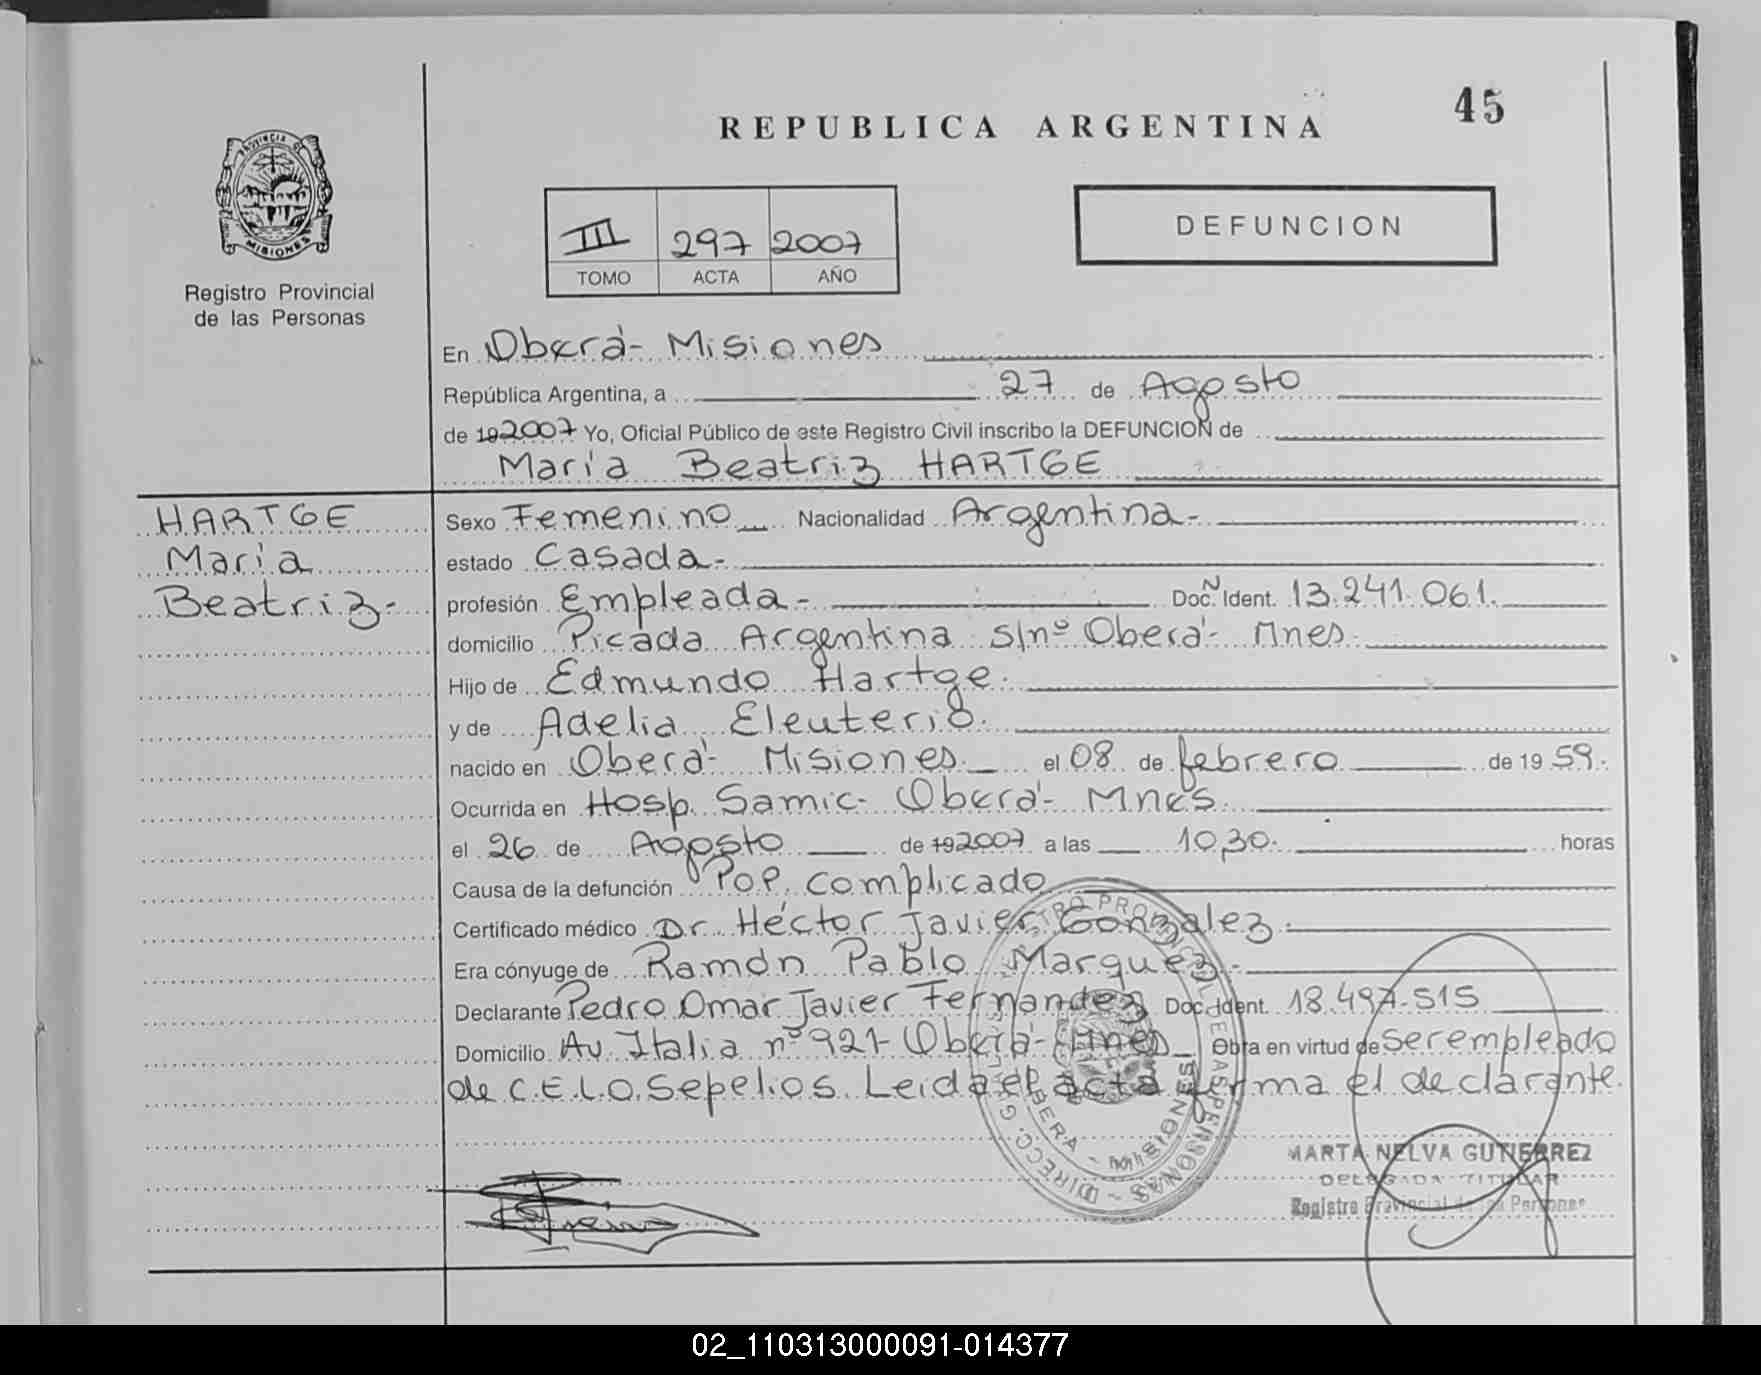 45
REPUBLICA ARGENTINA
PROVINCIA DE
MISIONES
Registro Provincial
de las Personas
III 297 2007
TOMO ACTA AÑO
DEFUNCION
En Oberá- Misiones
República Argentina, a 27 de Agosto
de 192007 Yo, Oficial Público de este Registro Civil inscribo la DEFUNCION de
María Beatriz HARTGE
HARTGE
María
Beatriz-
Sexo Femenino Nacionalidad Argentina-
estado Casada-
profesión Empleada- Doc. N Ident. 13.241.061.
domicilio Picada Argentina s/nº Oberá- Mnes.
Hijo de Edmundo Hartge.
y de Adelia Eleuterio.
nacido en Oberá- Misiones. el 08 de febrero de 19 59.
Ocurrida en Hosp. Samic- Oberá- Mnes.
el 26 de Agosto de 192007 a las 10,30. horas
Causa de la defunción Pop. complicado
Certificado médico Dr. Héctor Javier Gonzalez.
Era cónyuge de Ramón Pablo Marquez.-
Declarante Pedro Omar Javier Fernandez Doc. Ident. 18.497.515
Domicilio Av. Italia nº 921- Oberá- Mnes Obra en virtud de ser empleado
de C.E.L.O. Sepelios. Leida el acta firma el declarante.
MARTA NELVA GUTIERREZ
DELEGADA TITULAR
Registro Provincial de las Personas
02_110313000091-014377